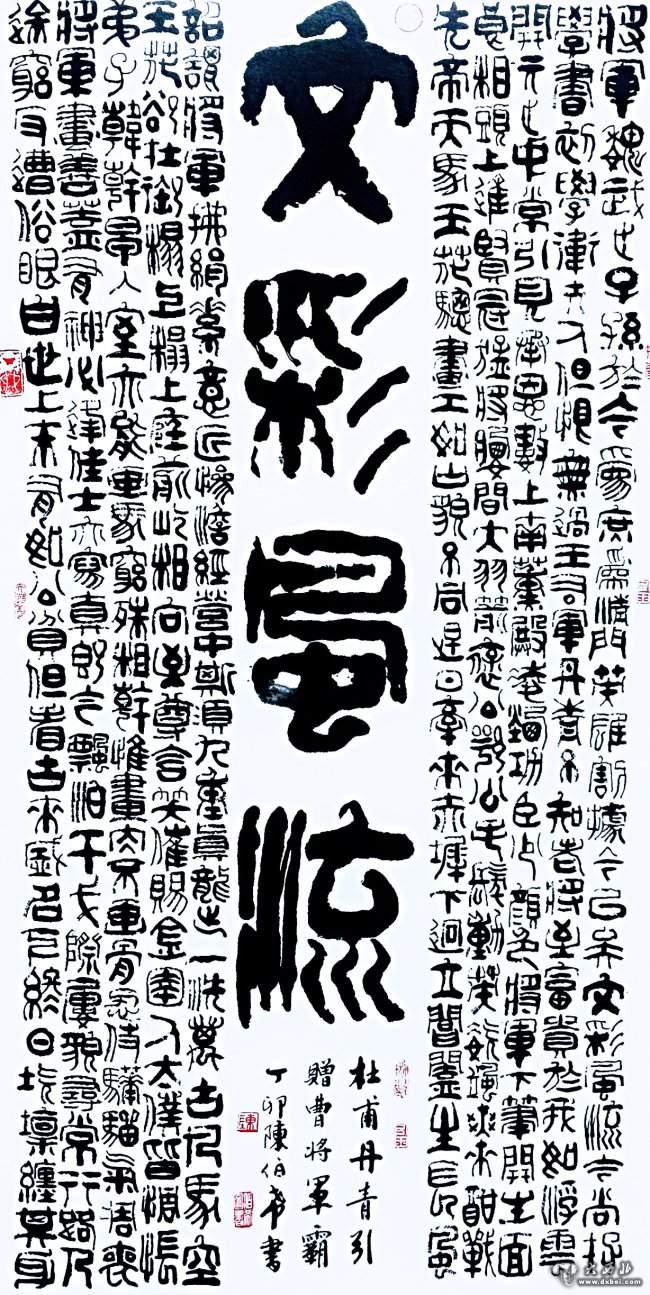 文彩風流
將軍魏武之子孫於今為庶為清門英雄割據今已矣文彩風流今尚存
學書初學衛夫人但恨無過王右軍丹青不知老將至富貴於我如浮雲
開元之中常引見承恩數上南薰殿凌煙功臣少顏色將軍下筆開生面
良相頭上進賢冠猛將腰間大羽箭褒公鄂公毛髮動英姿颯爽來酣戰
先帝天馬玉花驄畫工如山貌不同是日牽來赤墀下迥立閶闔生長風
詔謂將軍拂絹素意匠慘澹經營中斯須九重真龍出一洗萬古凡馬空
玉花卻在御榻上榻上庭前屹相向至尊含笑催賜金圉人太僕皆惆悵
弟子韓幹早入室亦能畫馬窮殊相幹惟畫肉不畫骨忍使驊騮氣凋喪
將軍畫善蓋有神必逢佳士亦寫真即今飄泊干戈際屢貌尋常行路人
途窮反遭俗眼白世上未有如公貧但看古來盛名下終日坎壈纏其身
杜甫丹青引
贈曹將軍霸
丁卯陳伯希書
大西北
www.dxbei.com